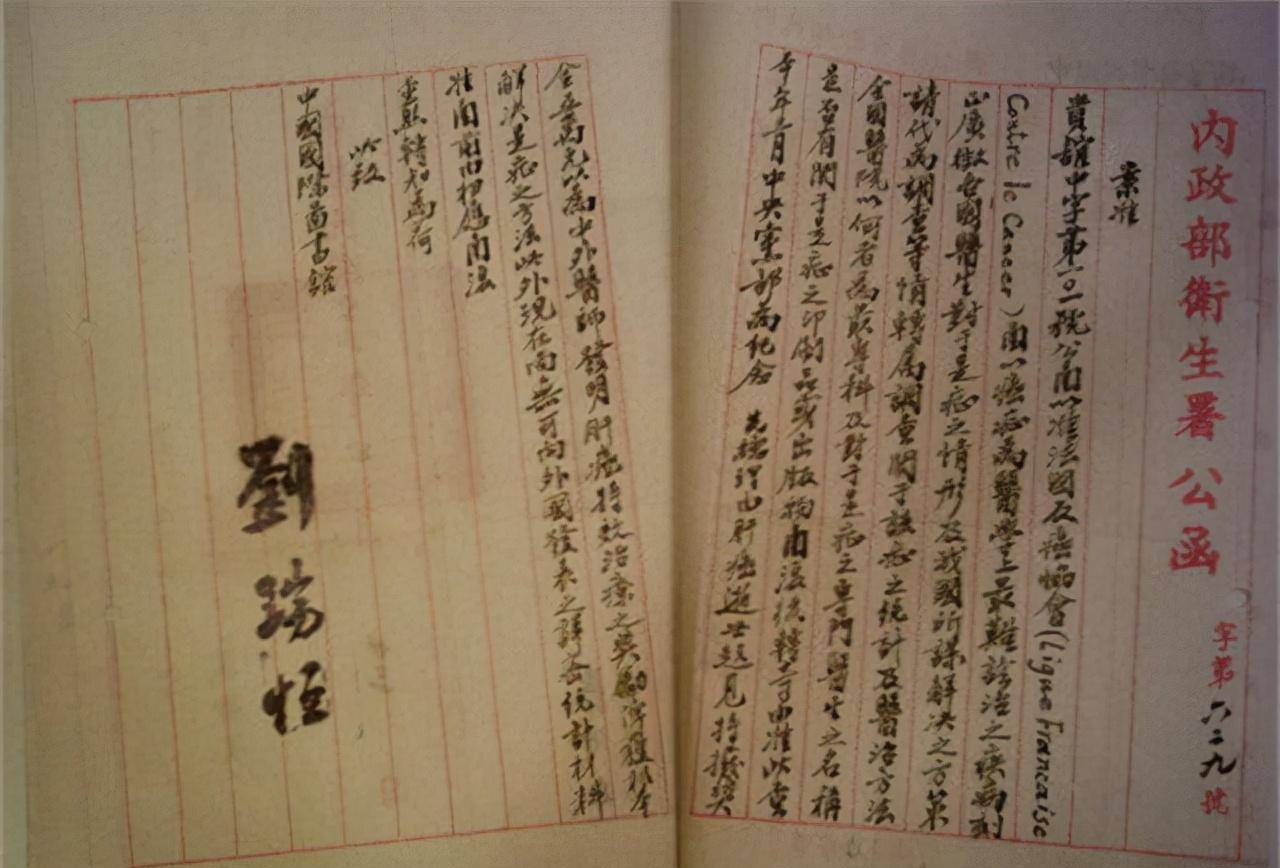 內政部衛生署公函
字第六二九號
案准
貴館中字第一〇一號公函以准法國反癌協會(Ligue Francaise
Contre le Cancer)函以癌症為醫學上最難診治之疾病刻
正廣徵各國醫生對于是症之情形及我國所謀解決之方策
請代為調查等情轉屬調查關于該症之統計及醫治方法
全國醫院以何者為最專科及對于是症之專門醫生之名稱
是否有關于是症之印刷品或出版物函復後轉寄由准此查
本年 月中央黨部為紀念 先總理由肝癌逝世起見特撥獎
金 萬元以為中外醫師發明肝癌特效治療之獎勵
解決是症之方法此外現在尚無可向外國發表之詳密統計材料
准函前由相應函復
查照轉知為荷
此致
中國國際圖書館
劉瑞恒